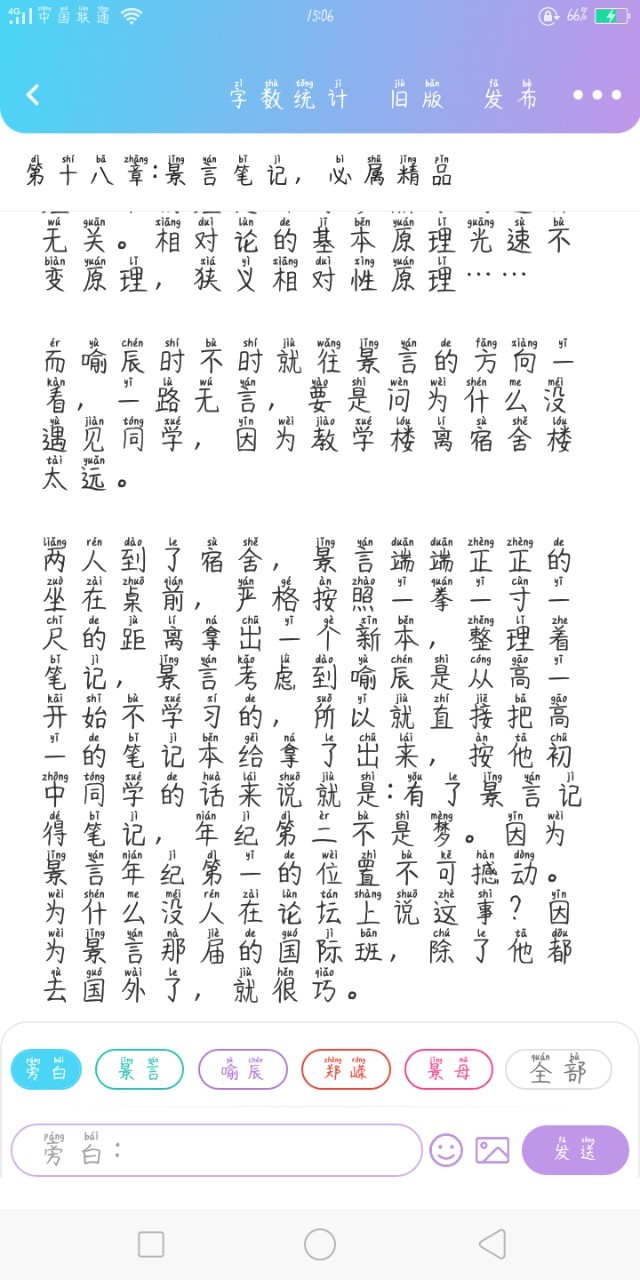 4G 中国联通 15:06 66%
字数统计 旧版 发布
第十八章:景言笔记,必属精品
无关。相对论的基本原理光速不
变原理,狭义相对性原理……
而喻辰时不时就往景言的方向一
看,一路无言,要是问为什么没
遇见同学,因为教学楼离宿舍楼
太远。
两人到了宿舍,景言端端正正的
坐在桌前,严格按照一拳一寸一
尺的距离拿出一个新本,整理着
笔记,景言考虑到喻辰是从高一
开始不学习的,所以就直接把高
一的笔记本给拿了出来,按他初
中同学的话来说就是:有了景言记
得笔记,年纪第二不是梦。因为
景言年纪第一的位置不可撼动。
为什么没人在论坛上说这事?因
为景言那届的国际班,除了他都
去国外了,就很巧。
旁白 景言 喻辰 郑嵘 景母 全部
旁白: 发送